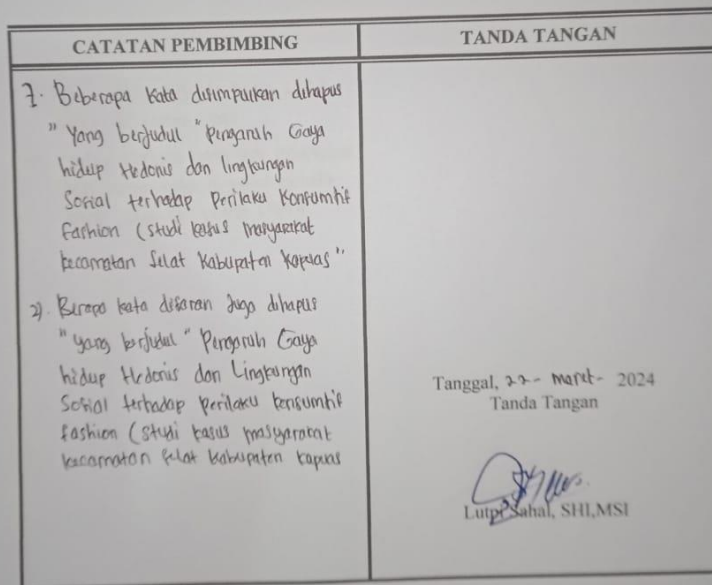 CATATAN PEMBIMBING
TANDA TANGAN
1. Beberapa kata disimpulkan dihapus
" Yang berjudul " Pengaruh Gaya
hidup Hedonis dan lingkungan
Sosial terhadap Perilaku Konsumtif
fashion (studi kasus masyarakat
kecamatan Selat Kabupaten Kapuas"
2). Berapa kata disaran Juga dihapus
" yang berjudul " Pengaruh Gaya
hidup Hedonis dan Lingkungan
Sosial terhadap Perilaku konsumtif
fashion (studi kasus masyarakat
kecamatan selat kabupaten kapuas
Tanggal, 22 - maret - 2024
Tanda Tangan
Lutpi Sahal, SHI,MSI